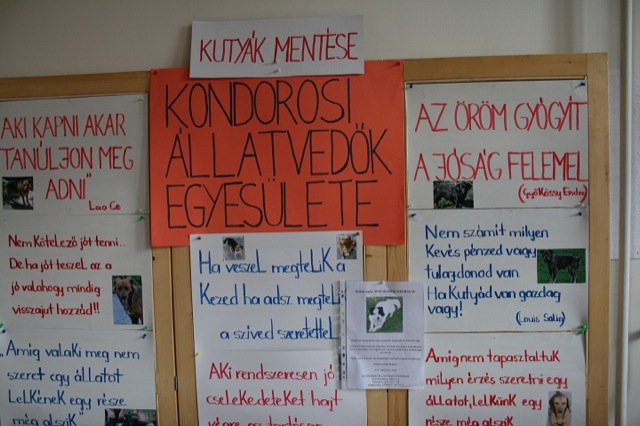 KUTYÁK MENTÉSE
KONDOROSI
ÁLLATVEDŐK
EGYESÜLETE
AKI KAPNI AKAR
TANÚLJON MEG
ADNI"
Lao Ce
Nem Kötelező jót tenni..
De ha jót teszel az a
jó valahogy mindig
visszajut hozzád!!
„Amíg valaki meg nem
szeret egy állatot
LeLKéneK egy része
még alszik"
Ha veszeL megteLiK a
Kezed ha adsz megteLiK
a szíved szeretettel
AKi rendszeresen jó
cseleKedeteKet hajt
végre
AZ ÖRÖM GYÓGYÍT
A JÓSÁG FELEMEL
(Gyökössy Endre)
Nem számít milyen
Kevés pénzed vagy
tulajdonod van
Ha Kutyád van gazdag
vagy!
(Louis Sabin)
Amíg nem tapasztaltuk
milyen érzés szeretni egy
állatot, leLKünK egy
része még alszik